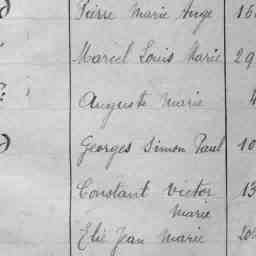 Pierre Marie Ange 15
Marcel Louis Marie 29
Auguste Marie 4
Georges Simon Paul 10
Constant Victor 13
Marie
Elie Jean Marie 20